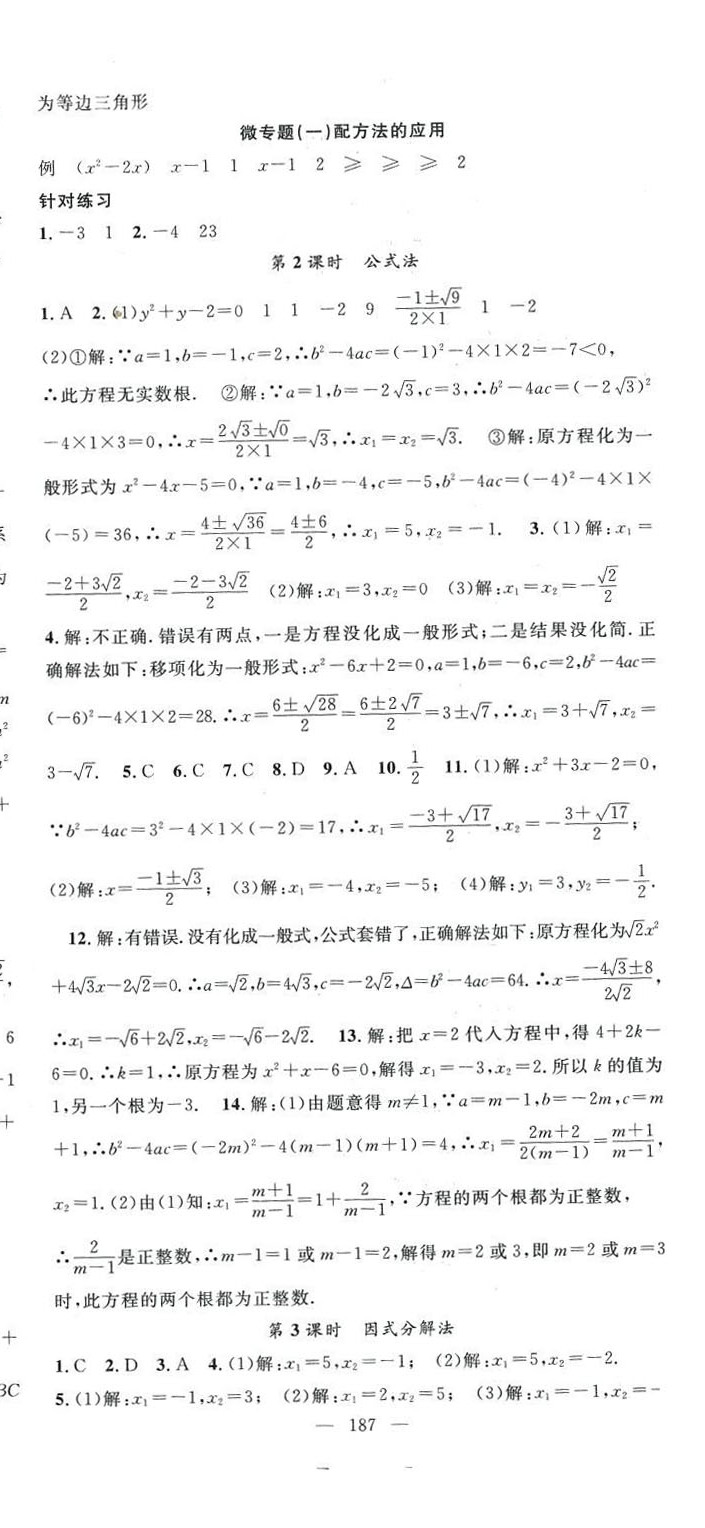 为等边三角形
微专题(一)配方法的应用
例 (x²-2x) x-1 1 x-1 2 ⩾ ⩾ ⩾ 2
针对练习
1.-3 1 2.-4 23
第2课时 公式法
1. A 2.(1)y²+y-2=0 1 1 -2 9 (-1±√9)/(2×1) 1 -2
(2)①解:∵a=1,b=-1,c=2,∴b²-4ac=(-1)²-4×1×2=-7<0,
∴此方程无实数根. ②解:∵a=1,b=-2√3,c=3,∴b²-4ac=(-2√3)²
-4×1×3=0,∴x=(2√3±√0)/(2×1)=√3,∴x₁=x₂=√3. ③解:原方程化为一
般形式为 x²-4x-5=0,∵a=1,b=-4,c=-5,b²-4ac=(-4)²-4×1×
(-5)=36,∴x=(4±√36)/(2×1)=(4±6)/2,∴x₁=5,x₂=-1. 3.(1)解:x₁=
(-2+3√2)/2,x₂=(-2-3√2)/2 (2)解:x₁=3,x₂=0 (3)解:x₁=x₂=-√2/2
4.解:不正确.错误有两点,一是方程没化成一般形式;二是结果没化简.正
确解法如下:移项化为一般形式:x²-6x+2=0,a=1,b=-6,c=2,b²-4ac=
(-6)²-4×1×2=28.∴x=(6±√28)/2=(6±2√7)/2=3±√7,∴x₁=3+√7,x₂=
3-√7. 5. C 6. C 7. C 8. D 9. A 10. 1/2 11.(1)解:x²+3x-2=0,
∵b²-4ac=3²-4×1×(-2)=17,∴x₁=(-3+√17)/2,x₂=-(3+√17)/2;
(2)解:x=(-1±√3)/2; (3)解:x₁=-4,x₂=-5; (4)解:y₁=3,y₂=-1/2.
12.解:有错误.没有化成一般式,公式套错了,正确解法如下:原方程化为√2x²
+4√3x-2√2=0.∴a=√2,b=4√3,c=-2√2,Δ=b²-4ac=64.∴x=(-4√3±8)/(2√2),
∴x₁=-√6+2√2,x₂=-√6-2√2. 13.解:把 x=2 代入方程中,得 4+2k-
6=0.∴k=1,∴原方程为 x²+x-6=0,解得 x₁=-3,x₂=2.所以 k 的值为
1,另一个根为-3. 14.解:(1)由题意得 m≠1,∵a=m-1,b=-2m,c=m
+1,∴b²-4ac=(-2m)²-4(m-1)(m+1)=4,∴x₁=(2m+2)/(2(m-1))=(m+1)/(m-1),
x₂=1.(2)由(1)知:x₁=(m+1)/(m-1)=1+2/(m-1),∵方程的两个根都为正整数,
∴2/(m-1)是正整数,∴m-1=1 或 m-1=2,解得 m=2 或 3,即 m=2 或 m=3
时,此方程的两个根都为正整数.
第3课时 因式分解法
1. C 2. D 3. A 4.(1)解:x₁=5,x₂=-1; (2)解:x₁=5,x₂=-2.
5.(1)解:x₁=-1,x₂=3; (2)解:x₁=2,x₂=5; (3)解:x₁=-1,x₂=-
— 187 —